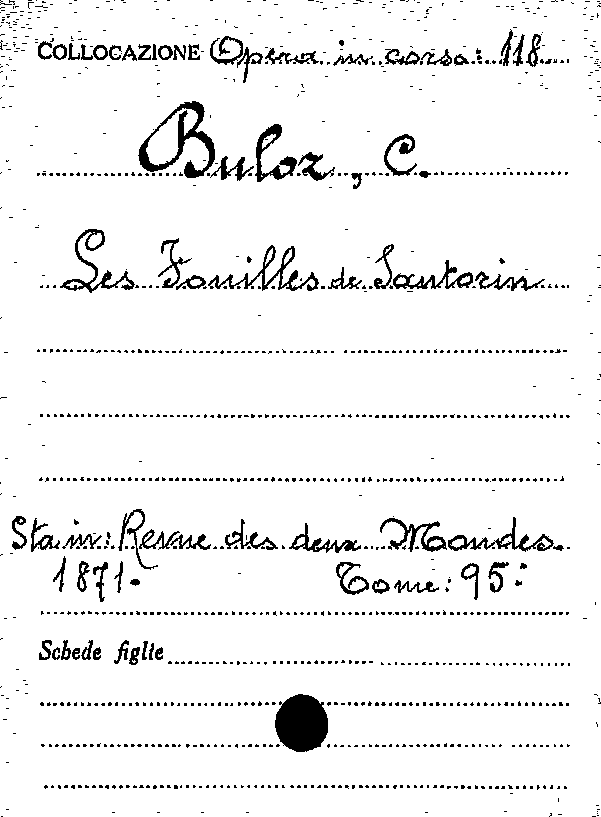 COLLOCAZIONE Opera in corso: 118
Buloz, C.
Les Fouilles de Santorin
Sta in: Revue des deux Mondes.
1871. Tome: 95:
Schede figlie